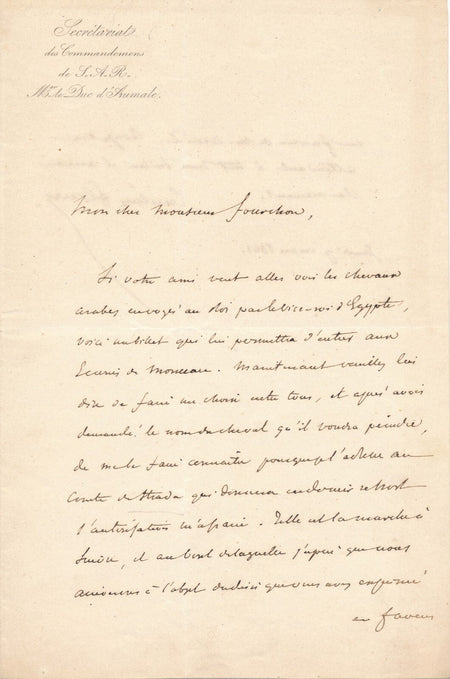 Secrétariat
des Commandemens
de S. A. R.
Mgr. le Duc d'Aumale.
Mon cher Monsieur Fourchon,
Si votre ami veut aller voir les chevaux
arabes envoyés au Roi par le Vice-roi d'Egypte,
voici un billet qui lui permettra d'entrer aux
Ecuries de Monceau. Maintenant veuillez lui
dire de faire un choix entre tous, et après avoir
demandé le nom du cheval qu'il voudra peindre,
de me le faire connaître pour que je l'adresse au
Comte de Strada qui donnera en dernier ressort
l'autorisation nécessaire. Telle est la marche à
suivre, et au bout de laquelle j'espère que nous
arriverons à l'objet du désir que vous avez exprimé
en faveur